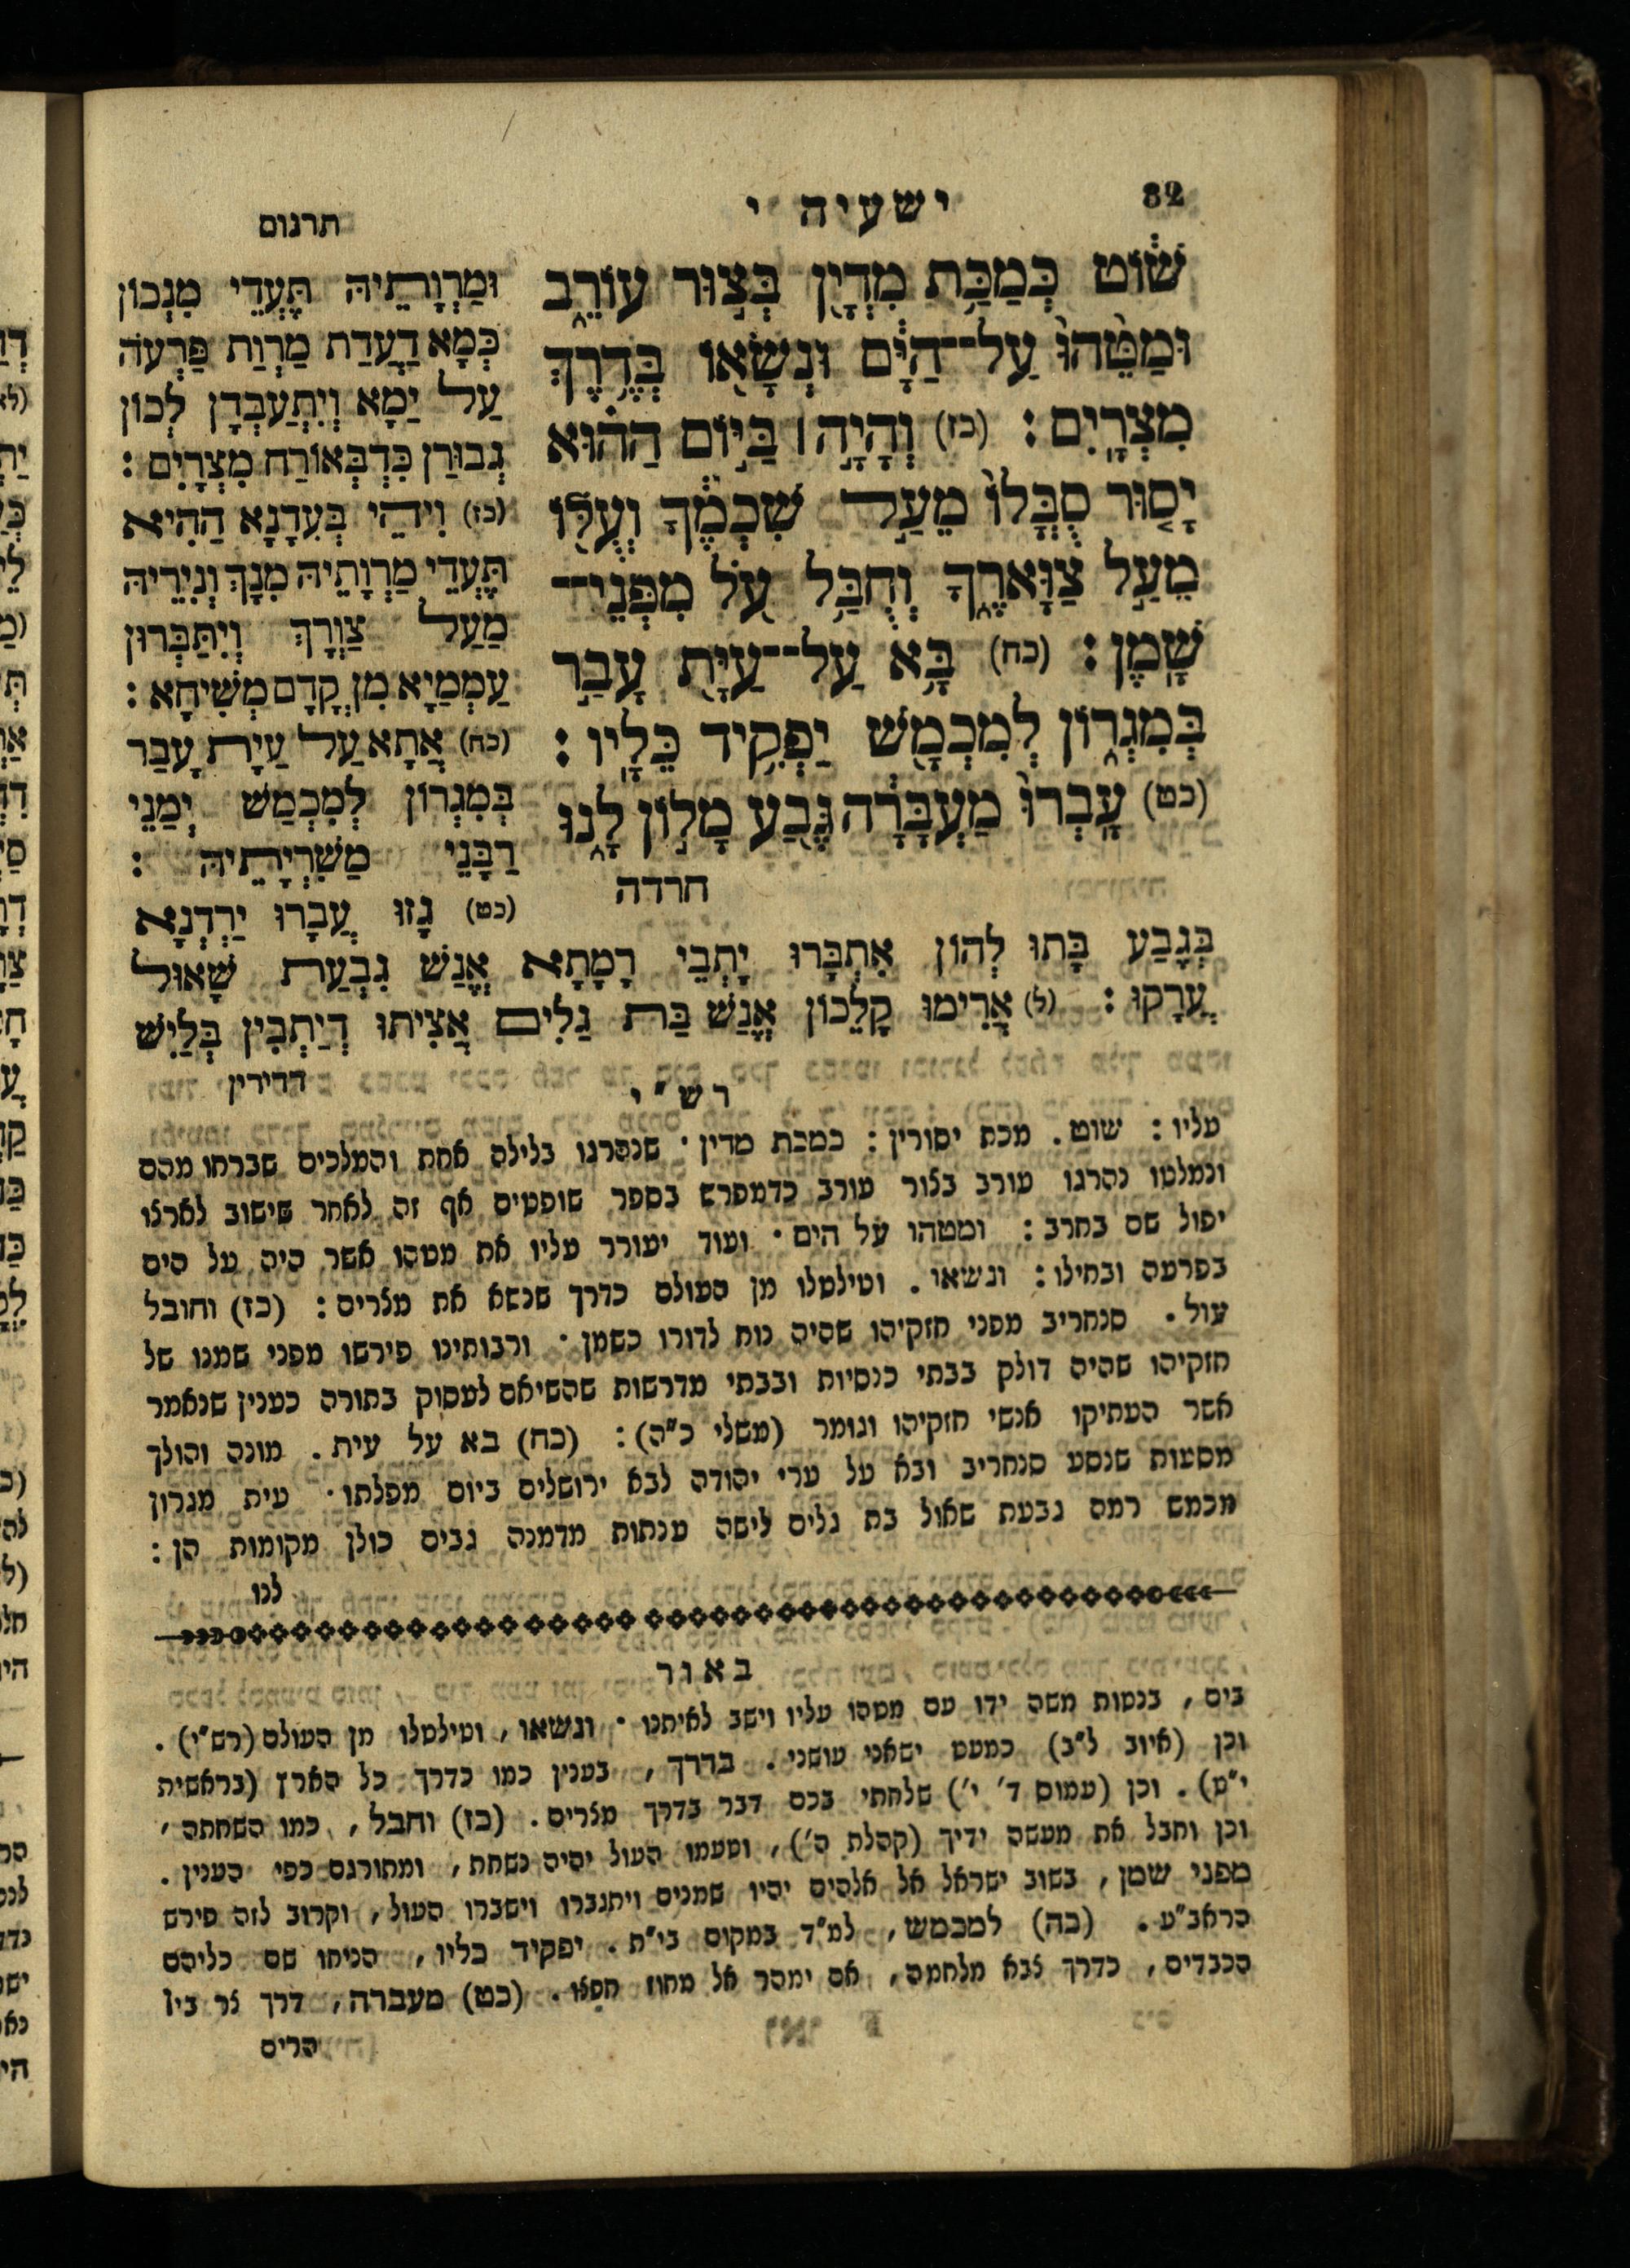 82
ישעיה י
תרגום
שׁ֔וֹט כְּמַכַּ֥ת מִדְיָ֖ן בְּצ֣וּר עוֹרֵ֑ב
וּמַטֵּ֙הוּ֙ עַל־הַיָּ֔ם וּנְשָׂא֖וֹ בְּדֶ֥רֶךְ
מִצְרָֽיִם׃ (כז) וְהָיָ֣ה ׀ בַּיּ֣וֹם הַה֗וּא
יָס֤וּר סֻבֳּלוֹ֙ מֵעַ֣ל שִׁכְמֶ֔ךָ וְעֻלּ֖וֹ
מֵעַ֣ל צַוָּארֶ֑ךָ וְחֻבַּ֥ל עֹ֖ל מִפְּנֵי־
שָֽׁמֶן׃ (כח) בָּ֥א עַל־עַיַּ֖ת עָבַ֣ר
בְּמִגְר֑וֹן לְמִכְמָ֖שׂ יַפְקִ֥יד כֵּלָֽיו׃
(כט) עָֽבְרוּ֙ מַעְבָּרָ֔ה גֶּ֖בַע מָל֣וֹן לָ֑נוּ
חרדה
וּמַרְוָתֵיהּ תֶּעְדֵי מִנְכוֹן
כְּמָא דַעֲדַת מַרְוַת פַּרְעֹה
עַל יַמָא וְיִתְעַבְּדָן לְכוֹן
גְבוּרַן כִּדְבְּאוֹרַח מִצְרָיִם :
(כז) וִיהֵי בְּעִדָנָא הַהִיא
תֶּעְדֵי מַרְוָתֵיהּ מִנָךְ וְנִירֵיהּ
מֵעַל צַוְרָךְ וְיִתַּבְּרוּן
עַמְמַיָא מִן קֳדָם מְשִׁיחָא :
(כח) אֲתָא עַל עַיָת עָבַר
בְּמִגְרוֹן לְמִכְמַשׁ יְמַנֵי
רַבָּנֵי מַשִׁרְיָתֵיהּ :
(כט) גָזוּ עֲבָרוּ יַרְדְנָא
בְּגֶבַע בָּתוּ לְהוֹן אִתְבָּרוּ יָתְבֵי רָמָתָא אֱנַשׁ גִבְעַת שָׁאוּל
עֲרָקוּ : (ל) אֲרִימוּ קָלֵכוֹן אֱנַשׁ בַּת גַלִים אֲצִיתוּ דְיַתְבִין בְּלַיִשׁ
דדירין
רש"י
עליו : שוט. מכת יסורין : כמכת מדין · שנהרגו בלילה אחת והמלכים שברחו מהם
ונמלטו נהרגו עורב בצור עורב כדמפרש בספר שופטים אף זה לאחר שישוב לארצו
יפול שם בחרב : ומטהו על הים · ועוד יעורר עליו את מטהו אשר היה על הים
בפרעה ובחילו : ונשאו. וטילטלו מן העולם כדרך שנשא את מצרים : (כז) וחובל
עול. סנחריב מפני חזקיהו שהיה נוח לדורו כשמן · ורבותינו פירשו מפני שמנו של
חזקיהו שהיה דולק בבתי כנסיות ובבתי מדרשות שהשיאם לעסוק בתורה כענין שנאמר
אשר העתיקו אנשי חזקיהו וגומר (משלי כ"ה) : (כח) בא על עית. מונה והולך
מסעות שנסע סנחריב ובא על ערי יהודה לבא ירושלים ביום מפלתו · עית מגרון
מכמש רמה גבעת שאול בת גלים לישה ענתות מדמנה גבים כולן מקומות הן :
לנו
באור
בים, בנטות משה ידו עם מטהו עליו וישב לאיתנו · ונשאו, וטילטלו מן העולם (רש"י).
וכן (איוב ל"ב) כמעט ישאני עושני. בדרך, בענין כמו כדרך כל הארץ (בראשית
י"ט). וכן (עמוס ד' י') שלחתי בכם דבר בדרך מצרים. (כז) וחבל, כמו השחתה,
וכן וחבל את מעשה ידיך (קהלת ה'), וטעמו העול יהיה נשחת, ומתורגם כפי הענין.
מפני שמן, בשוב ישראל אל אלהים יהיו שמנים ויתגברו וישברו העול, וקרוב לזה פירש
הראב"ע. (כח) למכמש, למ"ד במקום בי"ת. יפקיד כליו, הניחו שם כליהם
הכבדים, כדרך צבא מלחמה, אם ימהר אל מחוז חפצו. (כט) מעברה, דרך צר בין
הרים